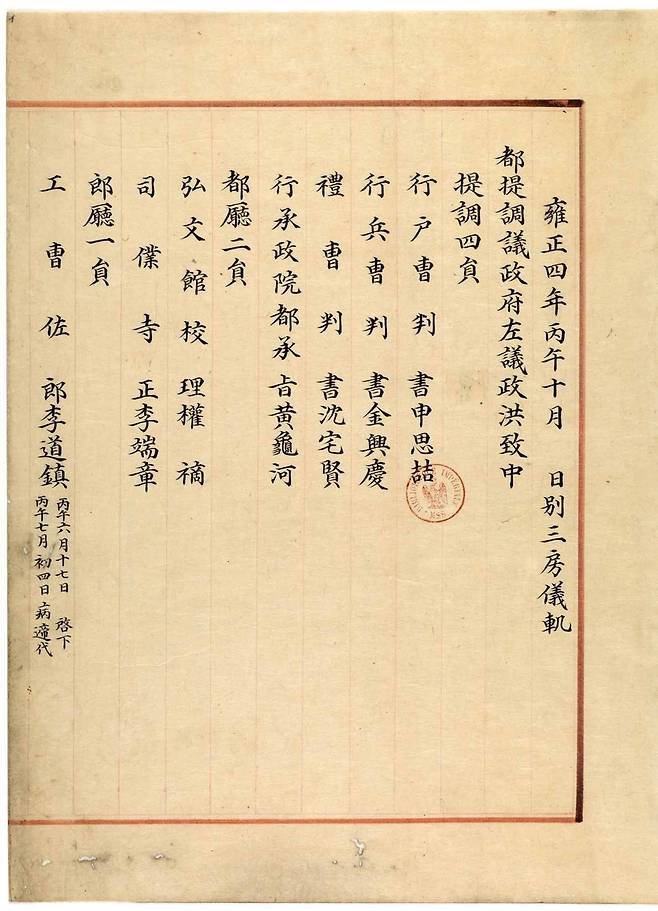 雍正四年丙午十月 日別三房儀軌
都提調議政府左議政洪致中
提調四員
行戶曹判書申思喆
行兵曹判書金興慶
禮曹判書沈宅賢
行承政院都承旨黃龜河
都廳二員
弘文館校理權禍
司僕寺正李端章
郎廳一員
工曹佐郎李道鎮
丙午六月十七日 啓下
丙午七月初四日病遞代